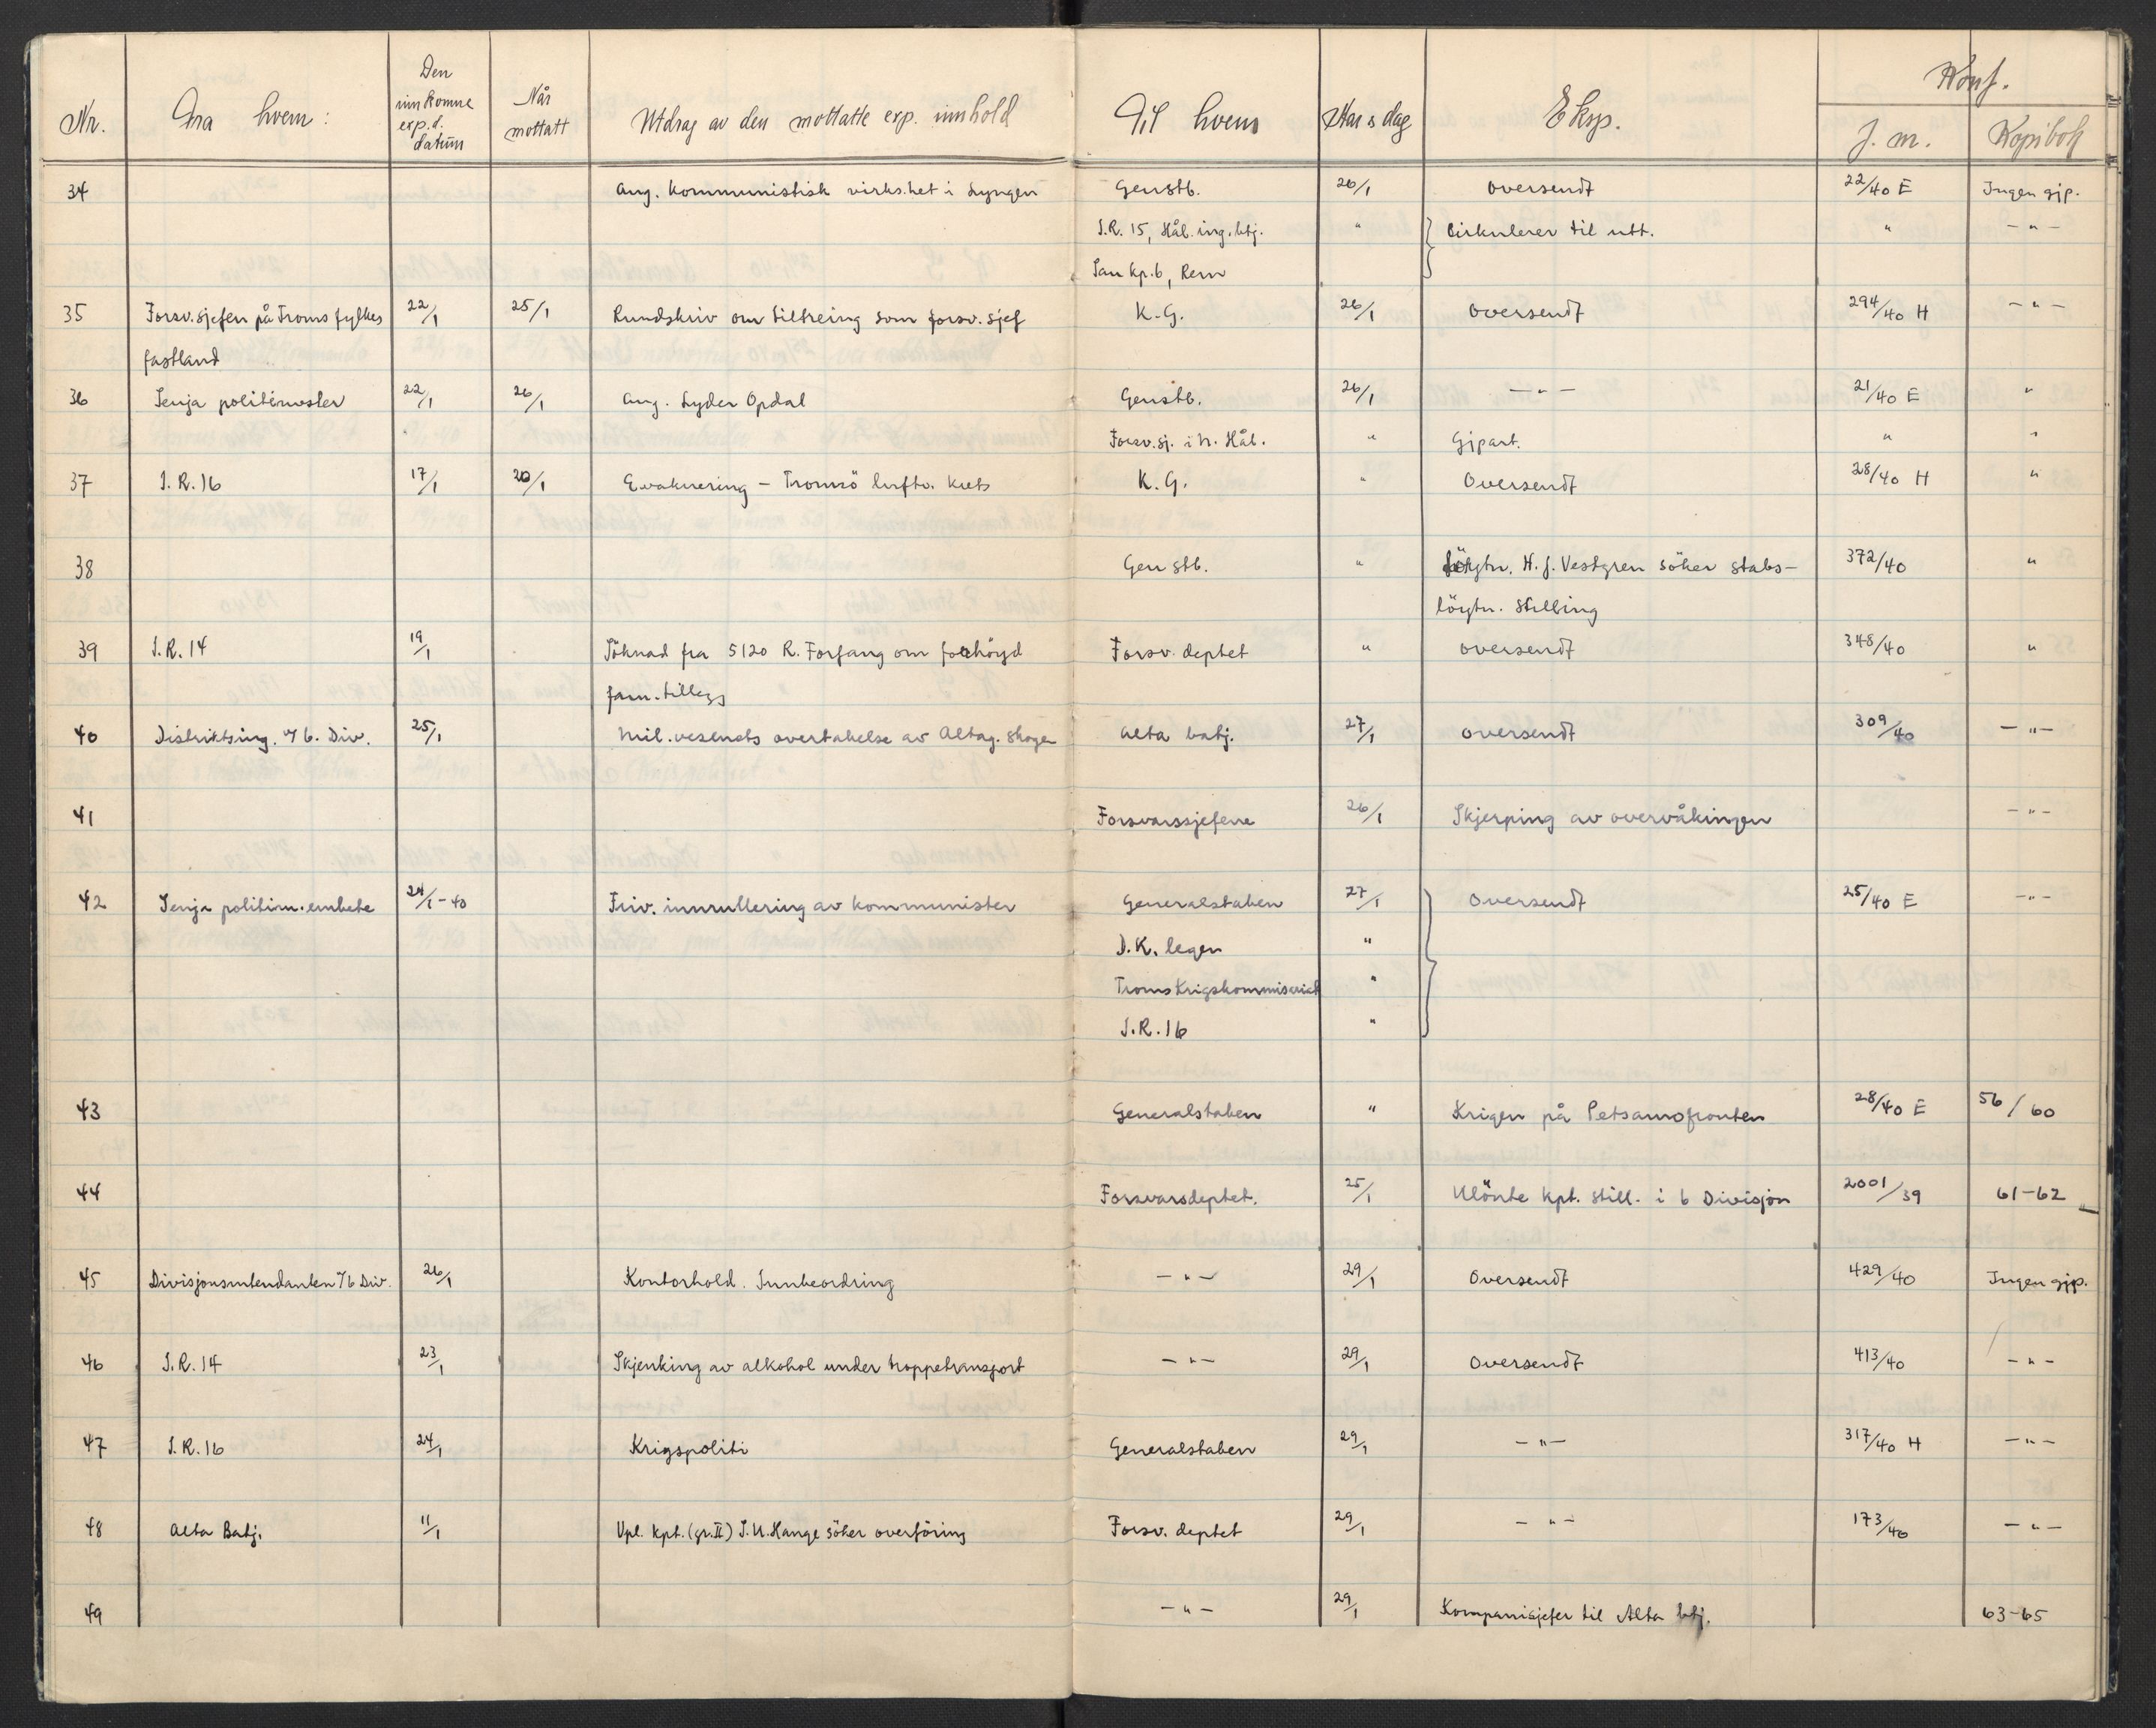 Nr. Fra hvem: Den innkomne exp.d. datum Når mottatt Utdrag av den mottatte exp. innhold Til hvem Aar & dag Eksp. Konf.
J. nr. Kopibok
34 Ang. kommunistisk virks.het i Lyngen Genstb. 26/1 Oversendt 22/40 E Ingen gjp.
I.R. 15, Hål. ing. btj. " Cirkulerer til utt. " - " -
San kp. 6, Rem
35 Forsv.sjefen på Troms fylkes 22/1 25/1 Rundskriv om tiltreing som forsv. sjef K.G. 26/1 Oversendt 294/40 H - " -
fastland
36 Senja politimester 22/1 26/1 Ang. Lyder Opdal Genstb. 26/1 - " - 21/40 E "
Forsv.sj. i N. Hål. " Gjpart. " "
37 I.R. 16 17/1 20/1 Evakuering - Tromsö luftv. krets K.G. " Oversendt 28/40 H "
38 Gen stb. " Löytn. H. J. Vestgren söker stabs-
löytn. stilling 372/40 "
39 I.R. 14 19/1 Söknad fra 5120 R. Forfang om forhöyd Forsv. deptet " oversendt 348/40 "
fam. tillegg
40 Distriktsing. v/6. Div. 25/1 Mil. vesenets overtakelse av Altag. skogen Alta batj. 27/1 oversendt 309/40 - " -
41 Forsvarssjefene 26/1 Skjerping av overvåkingen - " -
42 Senja politim. embete 24/1-40 Friv. innrullering av kommunister Generalstaben 27/1 Oversendt 25/40 E - " -
D.K. legen "
Troms Krigskommisariat "
I.R. 16 "
43 Generalstaben " Krigen på Petsamofronten 28/40 E 56/60
44 Forsvarsdeptet. 25/1 Ulönte kpt. still. i 6 Divisjon 2001/39 61-62
45 Divisjonsintendanten v/6 Div. 26/1 Kontorhold. Innbeordring - " - 29/1 Oversendt 429/40 Ingen gjp.
46 I.R. 14 23/1 Skjenking av alkohol under troppetransport - " - 29/1 Oversendt 413/40 - " -
47 I.R. 16 24/1 Krigspoliti Generalstaben 29/1 - " - 317/40 H - " -
48 Alta Batj. 11/1 Vpl. kpt. (gr. II) I.U. Hauge söker overföring Forsv. deptet 29/1 - " - 173/40 - " -
49 - " - 29/1 Kompanisjefer til Alta btj. 63-65